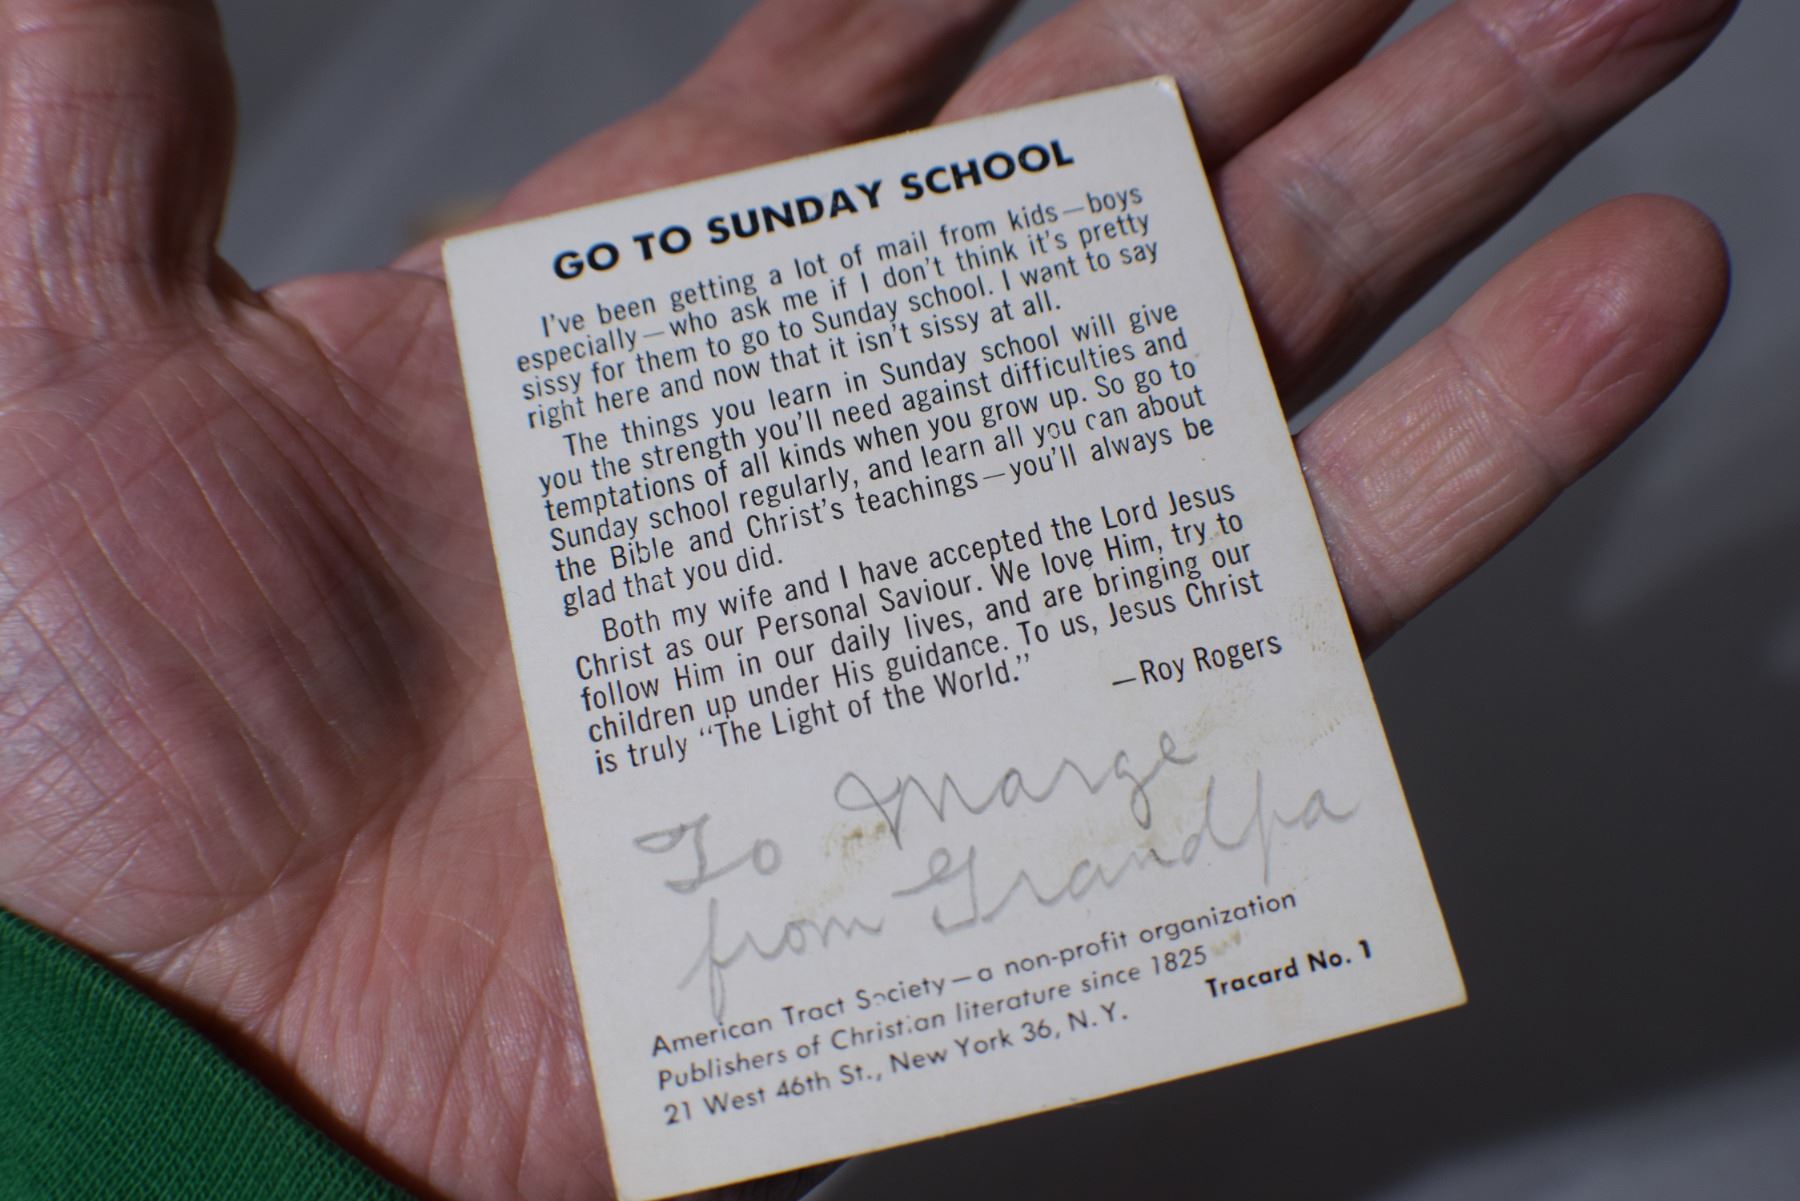 GO TO SUNDAY SCHOOL
I've been getting a lot of mail from kids—boys
especially—who ask me if I don't think it's pretty
sissy for them to go to Sunday school. I want to say
right here and now that it isn't sissy at all.
The things you learn in Sunday school will give
you the strength you'll need against difficulties and
temptations of all kinds when you grow up. So go to
Sunday school regularly, and learn all you can about
the Bible and Christ's teachings—you'll always be
glad that you did.
Both my wife and I have accepted the Lord Jesus
Christ as our Personal Saviour. We love Him, try to
follow Him in our daily lives, and are bringing our
children up under His guidance. To us, Jesus Christ
is truly “The Light of the World.”
—Roy Rogers
To Marge
from Grandpa
American Tract Society—a non-profit organization
Publishers of Christian literature since 1825
21 West 46th St., New York 36, N.Y.
Tracard No. 1